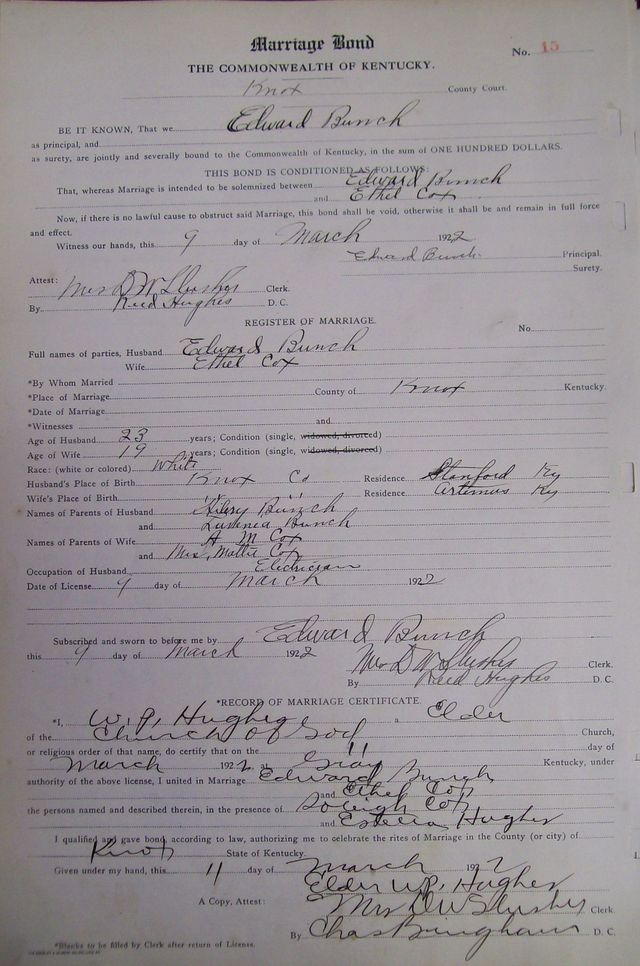 Marriage Bond
No. 15
THE COMMONWEALTH OF KENTUCKY.
Knox County Court.
BE IT KNOWN, That we Edward Bunch
as principal, and
as surety, are jointly and severally bound to the Commonwealth of Kentucky, in the sum of ONE HUNDRED DOLLARS.
THIS BOND IS CONDITIONED AS FOLLOWS:
That, whereas Marriage is intended to be solemnized between Edward Bunch
and Ethel Cox
Now, if there is no lawful cause to obstruct said Marriage, this bond shall be void, otherwise it shall be and remain in full force
and effect.
Witness our hands, this 9 day of March 1922
Edward Bunch Principal.
Surety.
Attest: Mrs D W Slusher Clerk.
By Reed Hughes D. C.
REGISTER OF MARRIAGE.
No.
Full names of parties, Husband Edward Bunch
Wife Ethel Cox
*By Whom Married
*Place of Marriage County of Knox Kentucky.
*Date of Marriage
*Witnesses and
Age of Husband 23 years; Condition (single, widowed, divorced)
Age of Wife 19 years; Condition (single, widowed, divorced)
Race: (white or colored) White
Husband's Place of Birth Knox Co Residence Stanford Ky
Wife's Place of Birth " " Residence Artemus Ky
Names of Parents of Husband Bunch
and Bunch
Names of Parents of Wife A M Cox
and Mrs, Mattie Cox
Occupation of Husband Electrician
Date of License 9 day of March 1922
Subscribed and sworn to before me by Edward Bunch
this 9 day of March 1922
Mrs D W Slusher Clerk.
By Reed Hughes D. C.
*RECORD OF MARRIAGE CERTIFICATE.
*I, W. P. Hughes a Elder
of the Church of God Church,
or religious order of that name, do certify that on the 11 day of
March 1922 at Gray Kentucky, under
authority of the above license, I united in Marriage Edward Bunch
and Ethel Cox
the persons named and described therein, in the presence of Cox
and Estella Hughes
I qualified and gave bond, according to law, authorizing me to celebrate the rites of Marriage in the County (or city) of
Knox State of Kentucky.
Given under my hand, this 11 day of March 1922
Elder W.P. Hughes
A Copy, Attest: Mrs D W Slusher Clerk
By Chas Bingham D. C.
*Blanks to be filled by Clerk after return of License.